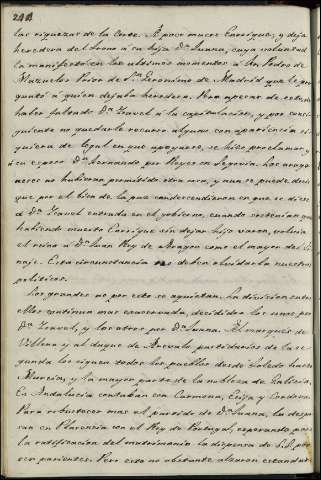 248
las riquezas de la Corte. A poco muere Enrrique, y deja
heredera del trono á su hija Dª Juana, cuya voluntad
la manifestó en los ultimos momentos á un Pedro de
Mazuelos Prior de Sn Geronimo de Madrid que le pre
guntó á quien dejaba heredera. Pero apesar de esto
haber faltado Dª Ysavel á la capitulacion, y por consi
guiente no quedarle recurso alguno con apariencia si
quiera de legal en que apoyarse, se hizo proclamar y
á su esposo Dn Fernando por Reyes en Segovia. Los arago
neses no hubieran permitido otra cosa, y aun se puede decir
que por el bien de la paz condescendieron en que se diese
á Dª Ysavel entrada en el gobierno, cuando sostenian que
habiendo muerto Enrrique sin dejar hijo varon, volvia
el reino á Dn Juan Rey de Aragon como el mayor del li
naje. Esta circunstancia no deben olvidarla nuestros
politicos.
Los grandes no por esto se aquietan. La division entre
ellos continua mas exacervada, decididos los unos por
Dª Ysavel, y los otros por Dª Juana. Al marques de
Villena y al duque de Arevalo partidarios de la se
gunda les siguen todos los pueblos desde Toledo hasta
Murcia, y la mayor parte de la nobleza de Galicia.
En Andalucia contaban con Carmona, Ecija y Cordova.
Para robustecer mas el partido de Dª Juana, la despo
san en Plasencia con el Rey de Portugal, esperando para
la ratificacion del matrimonio la dispensa de S.S. por
ser parientes. Pero esto no obstante alzaron estandar